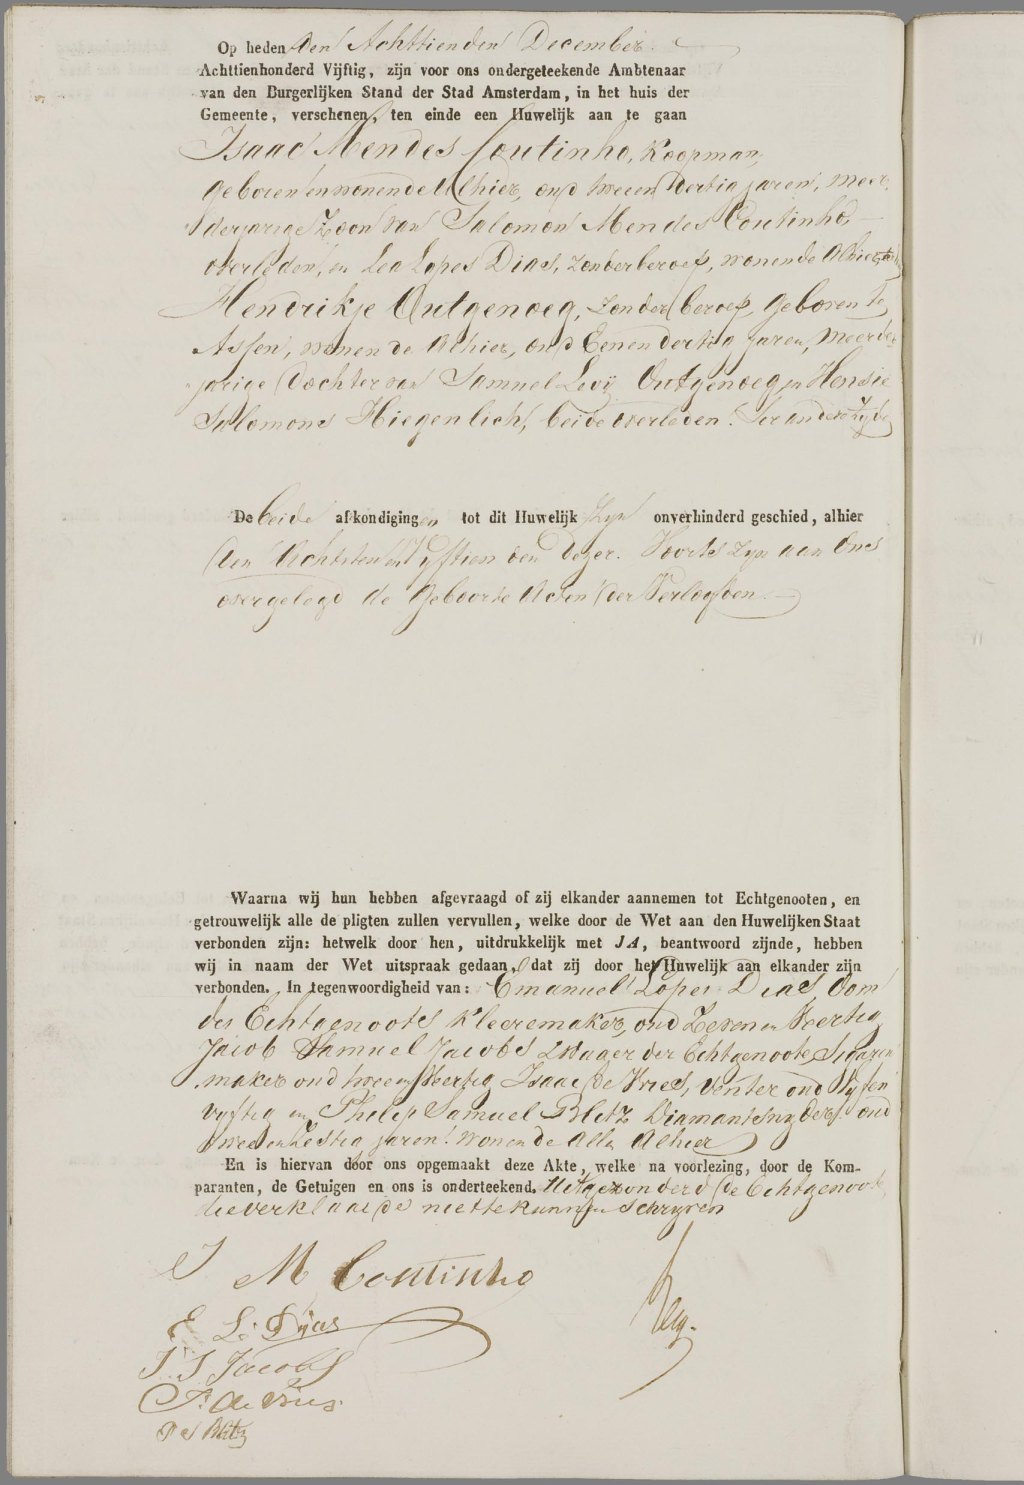 Op heden den Achttienden December
Achttienhonderd Vijftig, zijn voor ons ondergeteekende Ambtenaar
van den Burgerlijken Stand der Stad Amsterdam, in het huis der
Gemeente, verschenen, ten einde een Huwelijk aan te gaan
Isaac Mendes Coutinho, Koopman,
geboren en wonende Alhier, oud twee en dertig jaren, meer-
derjarige Zoon van Salomon Mendes Coutinho,
overleden, en Lea Lopes Dias, zonder beroep, wonende Alhier,
Hendrikje Outgenoeg, zonder beroep, geboren te
Assen, wonende Alhier, oud Eenendertig jaren, meerder-
jarige Dochter van Samuel Levij Outgenoeg en Hensie
Salomons Hiegenlich, beide overleden. Ter andere zyde
De beide afkondigingen tot dit Huwelijk zyn onverhinderd geschied, alhier
den Achtsten en Vyftienden dezer. Voorts zyn aan Ons
overgelegd de Geboorte Acten der Verloofden.
Waarna wij hun hebben afgevraagd of zij elkander aannemen tot Echtgenooten, en
getrouwelijk alle de pligten zullen vervullen, welke door de Wet aan den Huwelijken Staat
verbonden zijn: hetwelk door hen, uitdrukkelijk met JA, beantwoord zijnde, hebben
wij in naam der Wet uitspraak gedaan, dat zij door het Huwelijk aan elkander zijn
verbonden. In tegenwoordigheid van: Emanuel Lopes Dias, Oom
des Echtgenoots Kleeremaker, oud Zeven en Veertig
Jacob Samuel Jacobs Zwager der Echtgenoote, Sigaren
maker oud twee en Veertig Isaac de Vries, venter oud Vyf en
vyftig en Philip Samuel Blitz Diamantsnyder, oud
twee en Zestig jaren. wonende Alle Alhier
En is hiervan door ons opgemaakt deze Akte, welke na voorlezing, door de Kom-
paranten, de Getuigen en ons is onderteekend. Uitgezonderd de Echtgenoote
die verklaarde niet te kunnen schryven
I M Coutinho
E L: Dÿas
J. S Jacobs
I: de Vries
P S Blitz